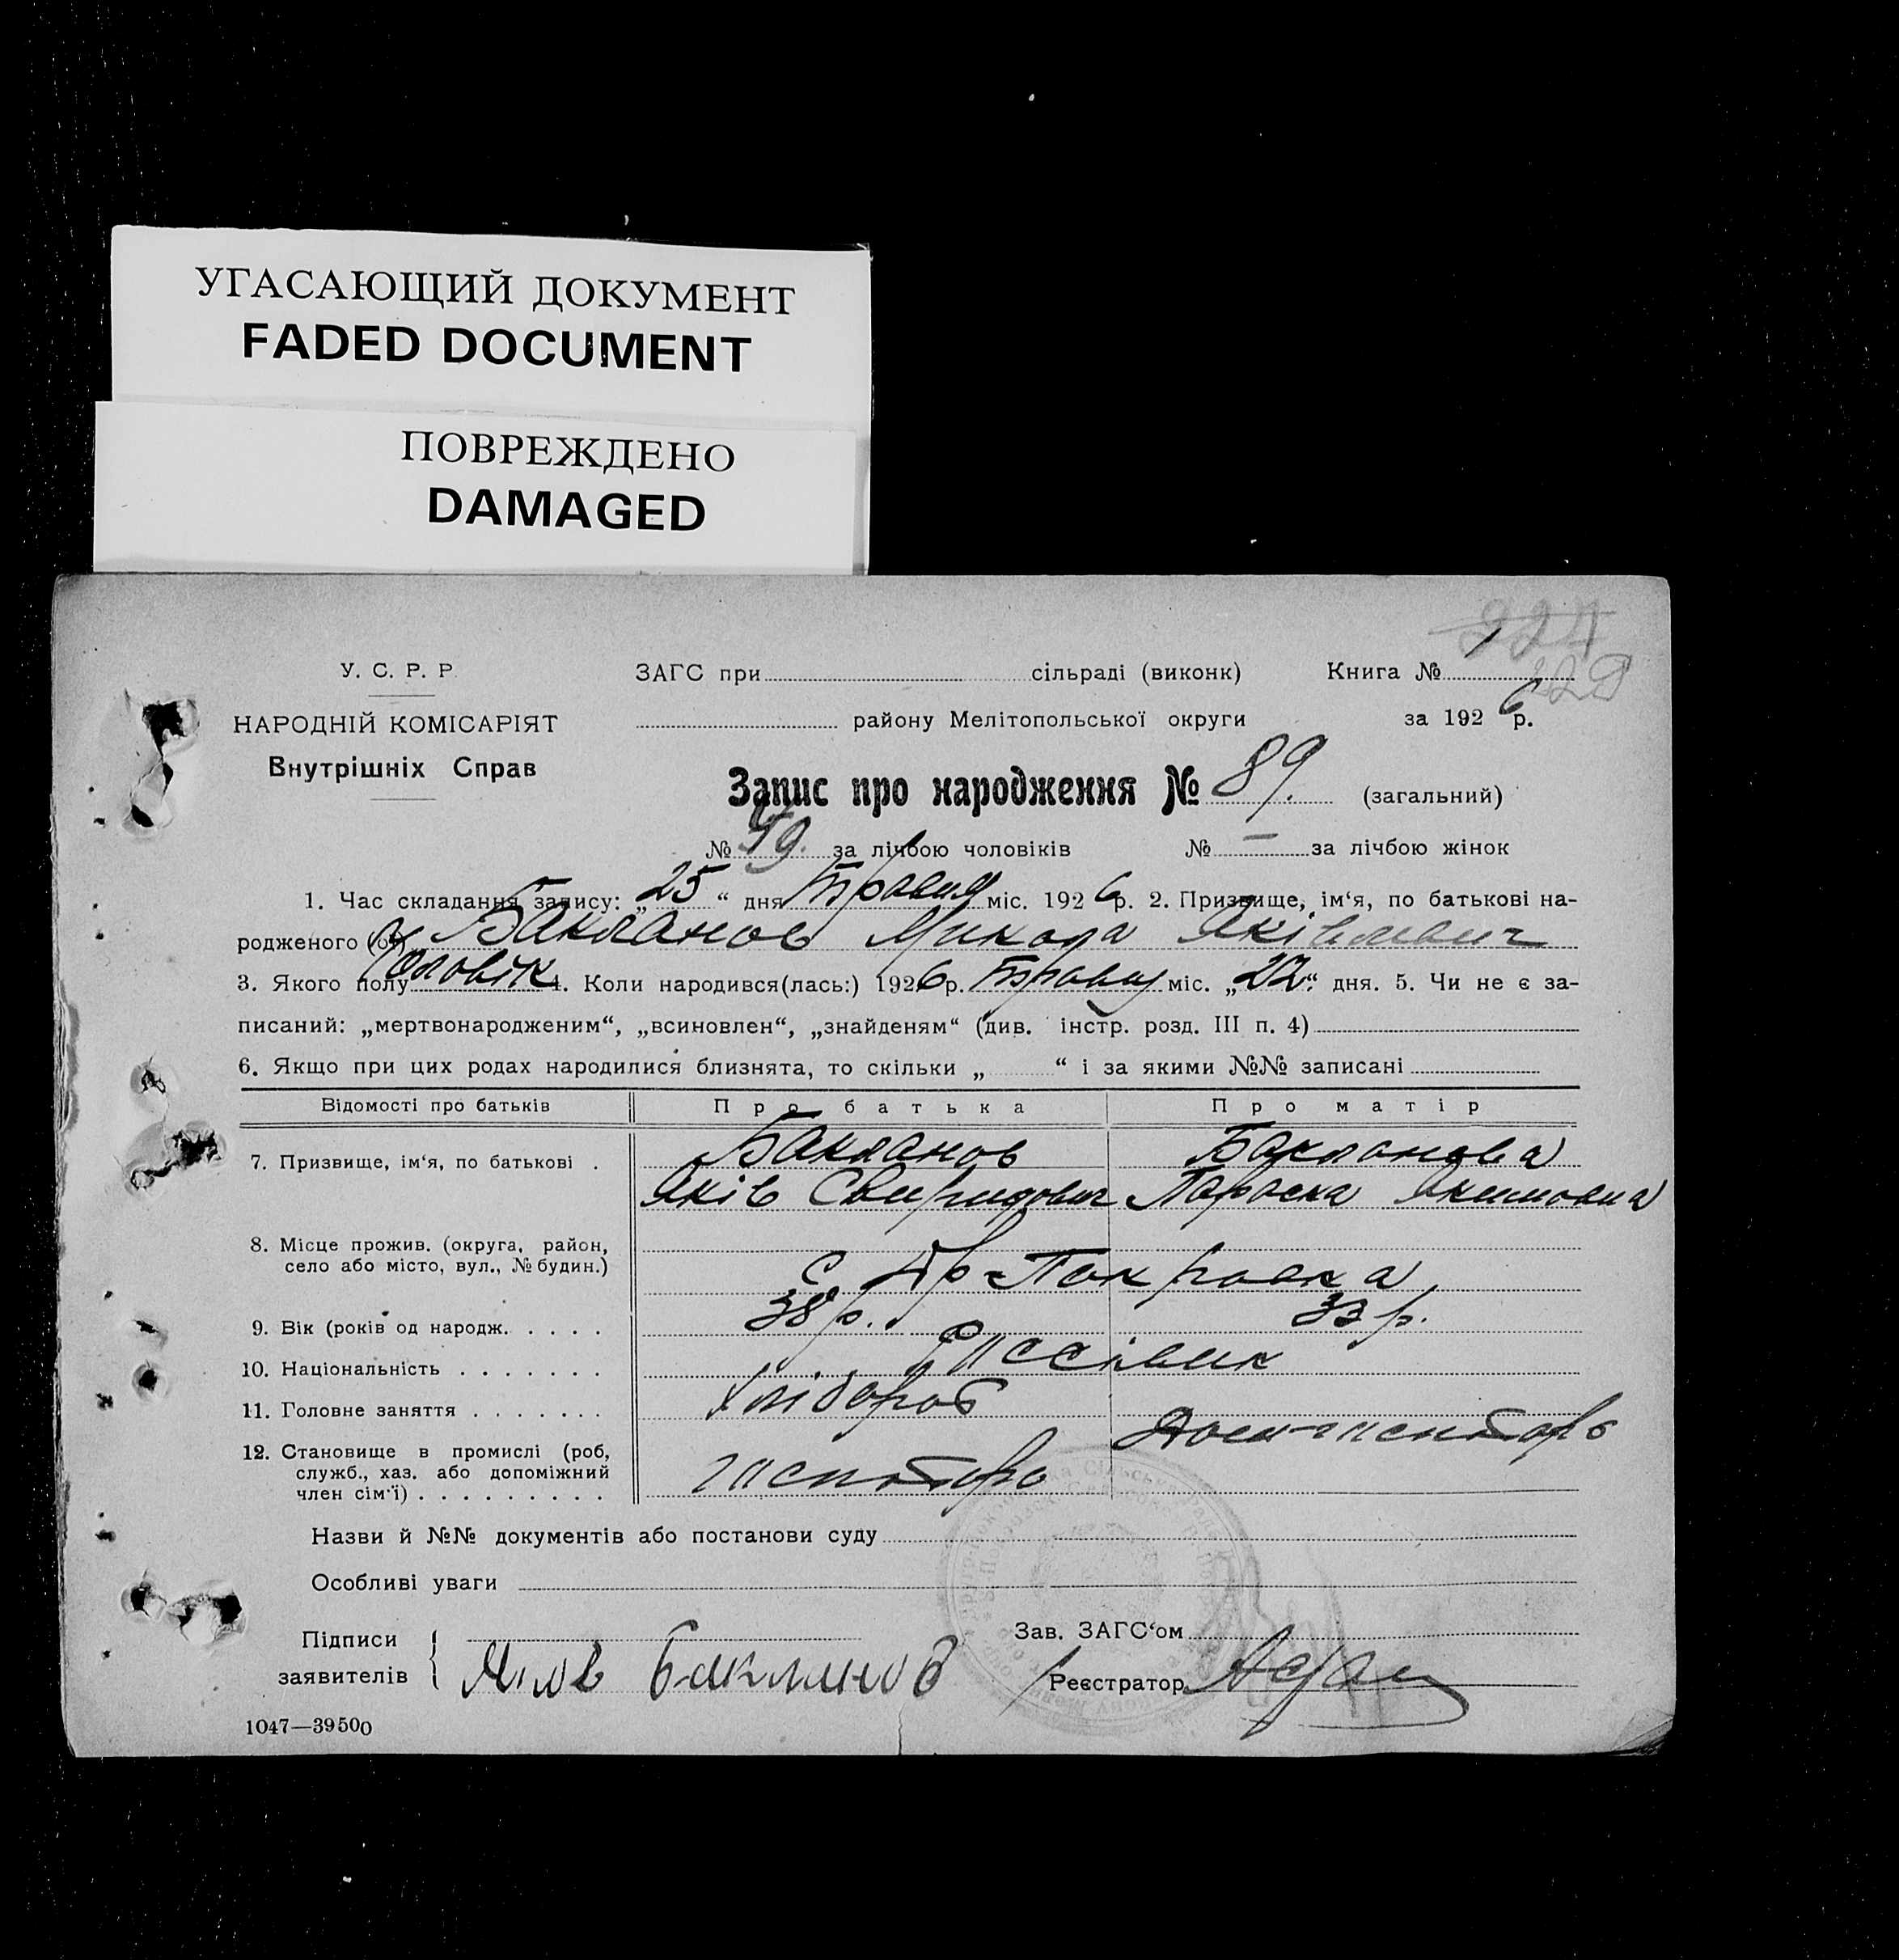 УГАСАЮЩИЙ ДОКУМЕНТ
FADED DOCUMENT
ПОВРЕЖДЕНО
DAMAGED
224
229
У. С. Р. Р.
ЗАГС при сільраді (виконк)
Книга №
НАРОДНІЙ КОМІСАРІЯТ
району Мелітопольської округи
за 1926 р.
Внутрішніх Справ
Запис про народження № 89. (загальний)
№ 49. за лічбою чоловіків № — за лічбою жінок
1. Час складання запису: „25“ дня Травня міс. 1926 р. 2. Призвище, ім‘я, по батькові на-
родженого (ої) Бакланов Микола Яківлевич
3. Якого полу Чоловік 4. Коли народився(лась:) 1926 р. Травня міс. „22“ дня. 5. Чи не є за-
писаний: „мертвонародженим“, „всиновлен“, „знайденям“ (див. інстр. розд. III п. 4)
6. Якщо при цих родах народилися близнята, то скільки „ “ і за якими №№ записані
Відомості про батьків Про батька Про матір
7. Призвище, ім‘я, по батькові . Бакланов Бакланова
Яків Свиридович Параска Якимовна
8. Місце прожив. (округа, район,
село або місто, вул., № будин.) с. Пр-Покровка
9. Вік (років од народж. . . . . 38 р. 33 р.
10. Національність . . . . . . .
11. Головне заняття . . . . . . . Хлібороб
12. Становище в промислі (роб,
служб., хаз. або допоміжний
член сім‘ї) . . . . . . . . .
Назви й №№ документів або постанови суду
Особливі уваги
Підписи
Зав. ЗАГС‘ом
заявителів Яков Бакланов
Реєстратор
1047—39500